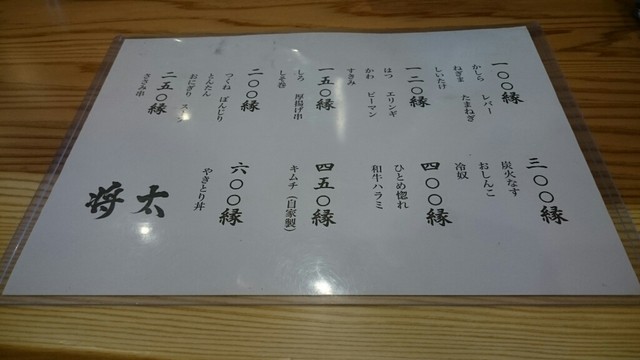 一〇〇縁
かしら　レバー
ねぎま　たまねぎ
しいたけ
一二〇縁
はつ　エリンギ
かわ　ピーマン
すきみ
一五〇縁
しろ　厚揚げ串
しそ巻
二〇〇縁
つくね　ぼんじり
とんたん
おにぎり　スープ
二五〇縁
ささみ串
三〇〇縁
炭火なす
おしんこ
冷奴
四〇〇縁
ひとめ惚れ
和牛ハラミ
四五〇縁
キムチ（自家製）
六〇〇縁
やきとり丼
将太